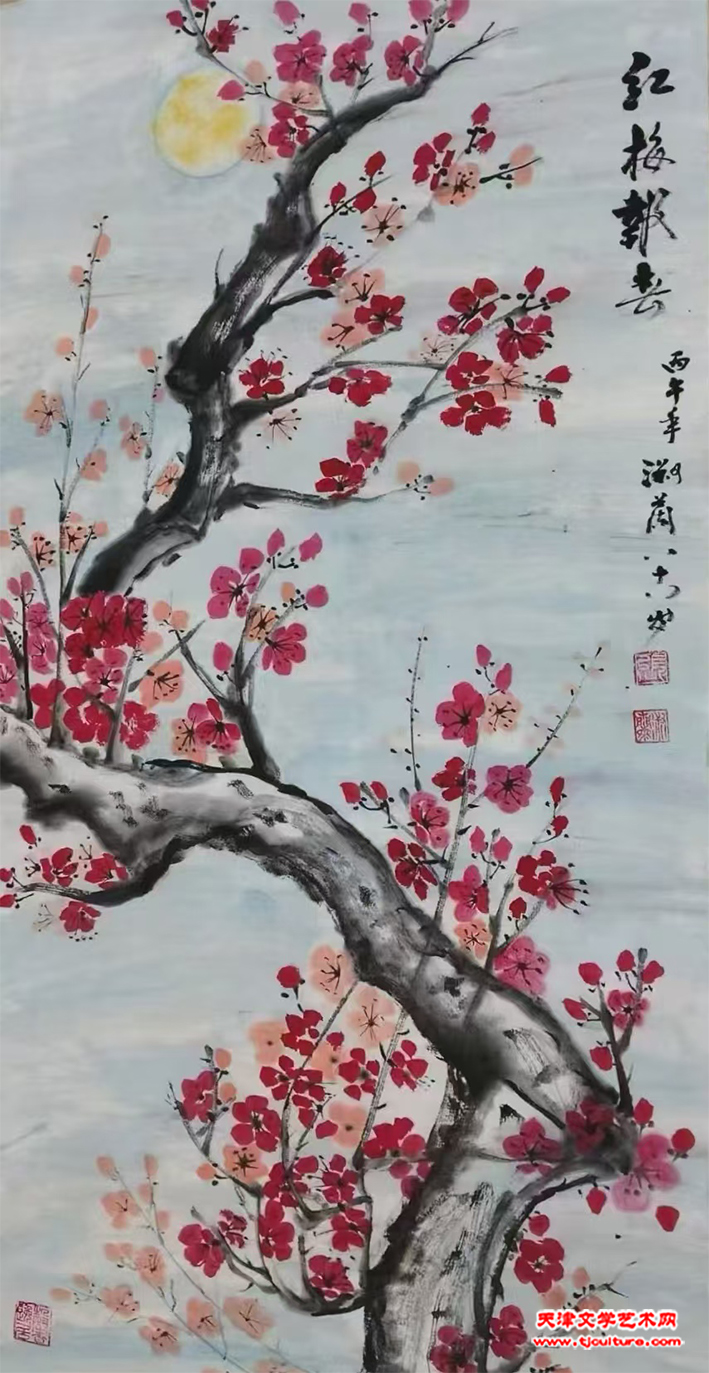 红梅报春
丙午年 淑兰八十六岁
天津文学艺术网
www.tjculture.com